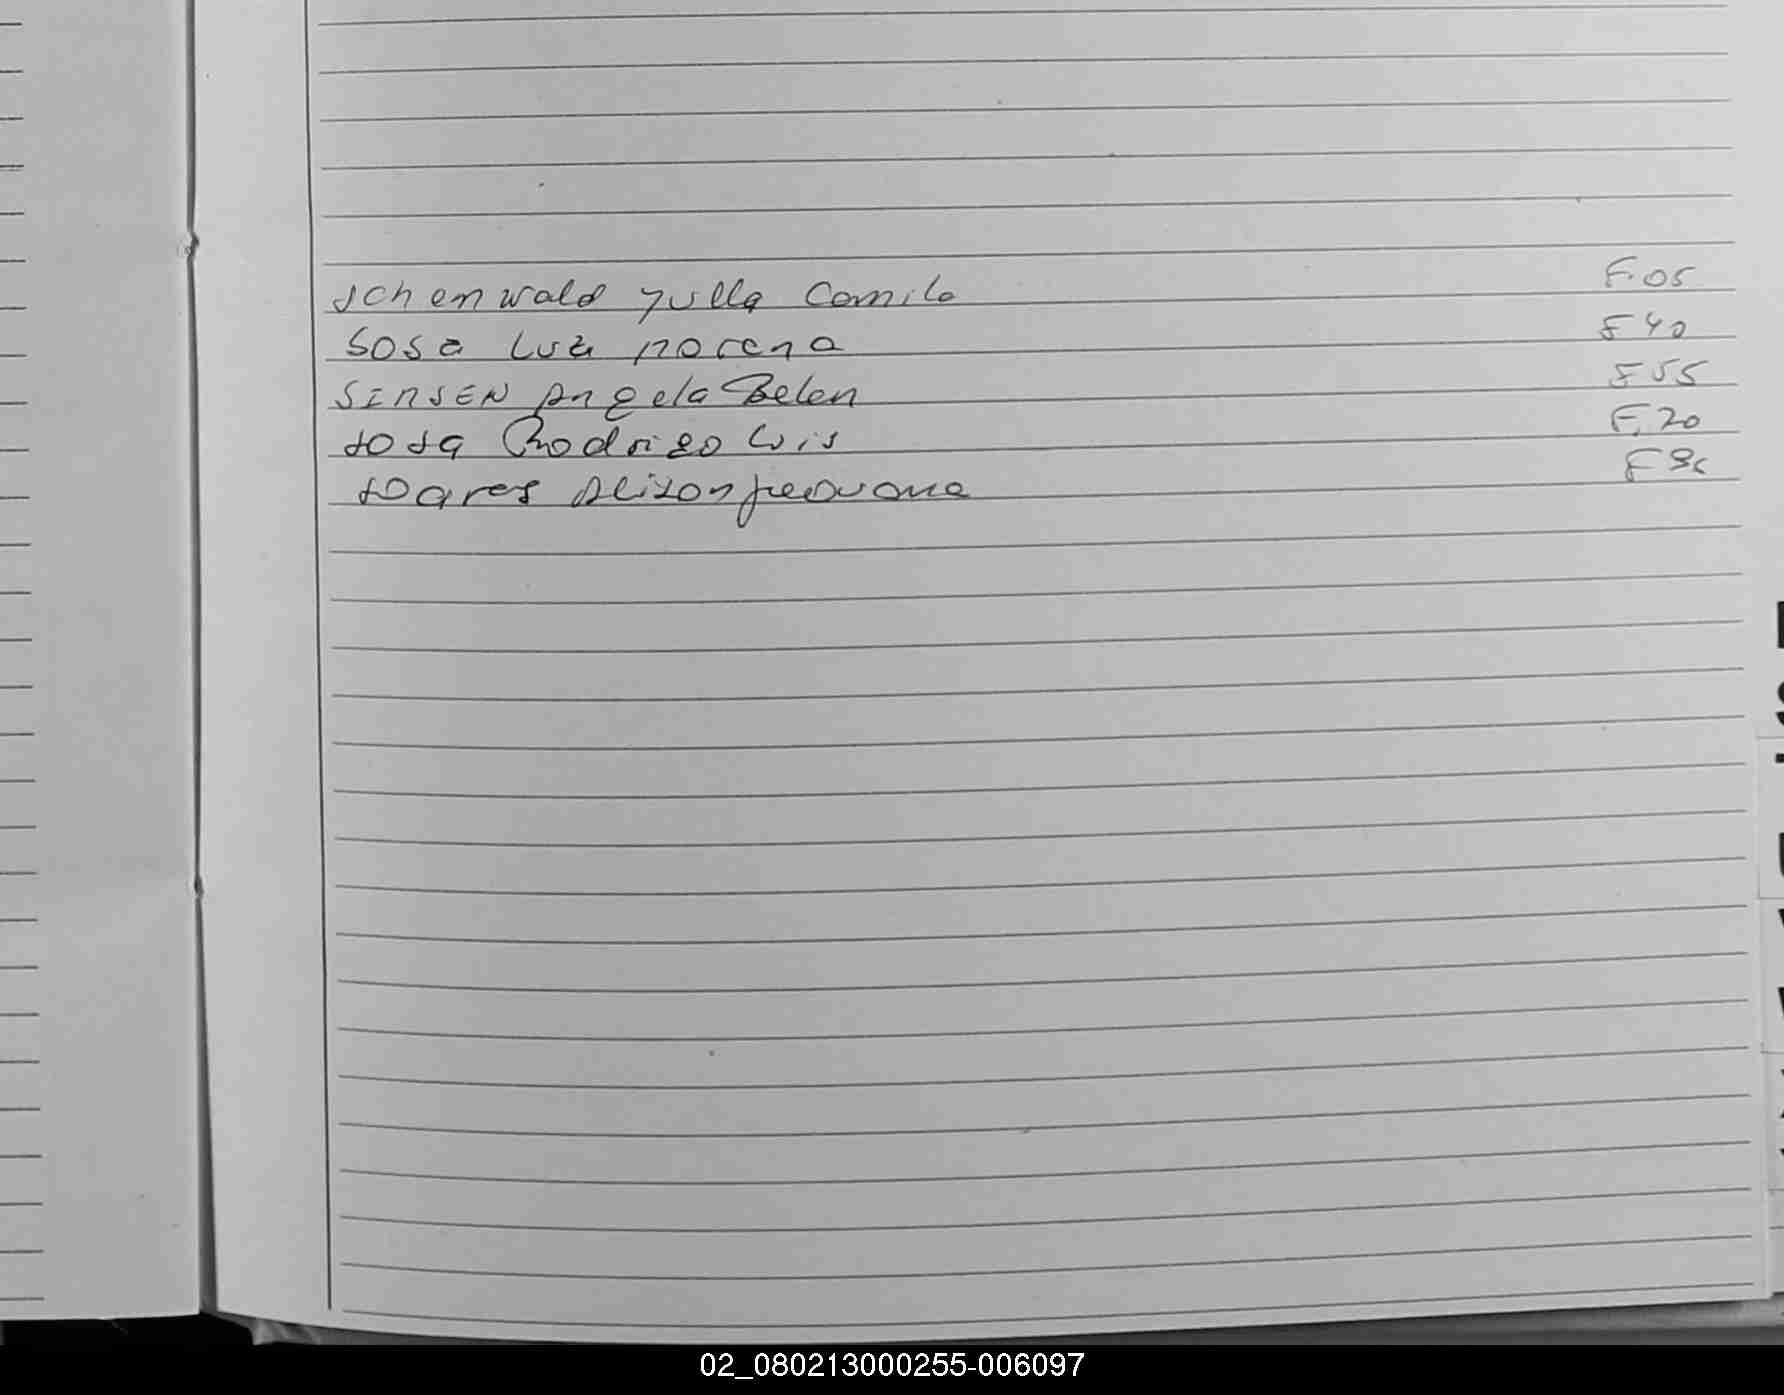 Schenwald Yulla Camila F.05
Sosa Luz Morena F 40
SINSEN Angela Belen F 55
Sosa Rodrigo Luis F. 20
Soares Alison F
02_080213000255-006097